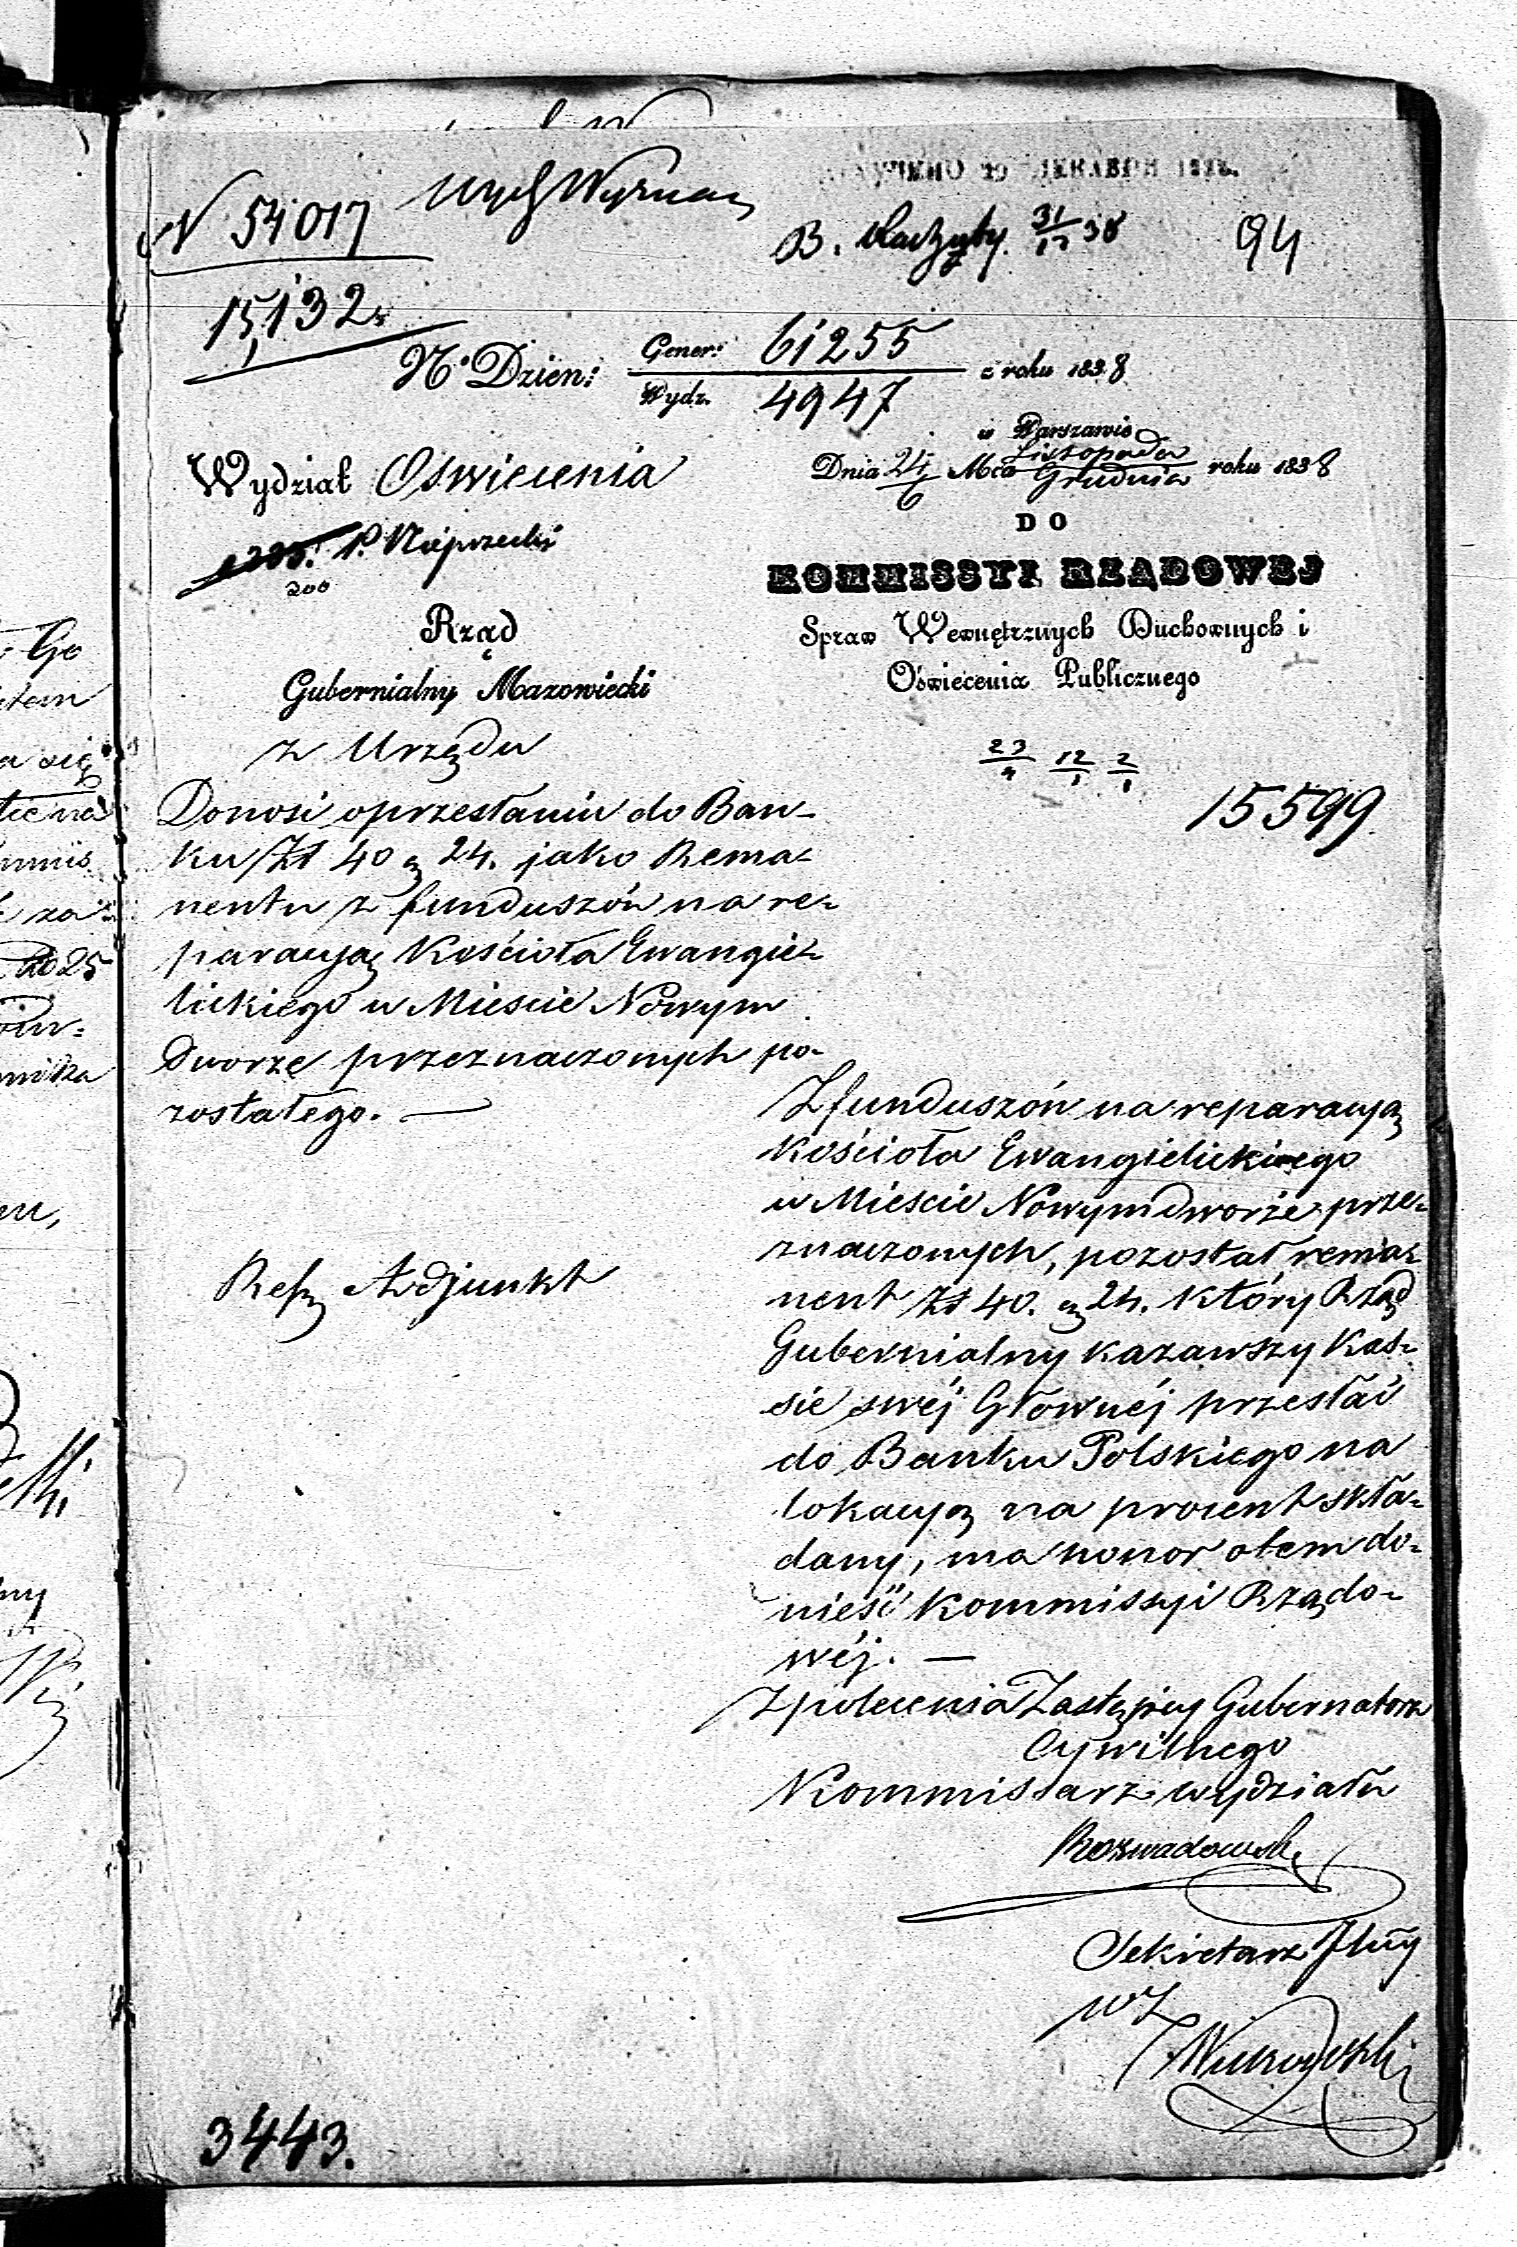 N 54017
15,132.
94
N. Dzien: Gener: 61255 z roku 1838
Wydz. 4947
w Warszawie
Dnia 24/6 Mca Listopada/Grudnia roku 1838
Wydział Oswiecenia
200
DO
KOMMISSYI RZĄDOWEJ
Spraw Wewnętrznych Duchownych i
Oświecenia Publicznego
Rząd
Gubernialny Mazowiecki
z Urzędu
23/4 12/1 2/1
15599
Donosi o przesłaniu do Ban-
ku Zł 40 g 24. jako Rema-
nentu z funduszów na re-
paracyą Kościoła Ewangie-
lickiego w Mieście Nowym
Dworze przeznaczonych po-
zostałego. —
Adjunkt
Z funduszów na reparacyą
Kościoła Ewangielickiego
w Mieście Nowymdworze prze-
znaczonych, pozostał rema-
nent Zł 40. g 24. który Rząd
Gubernialny kazawszy Kas-
sie swéj Głownéj przesłać
do Banku Polskiego na
lokacyą na procent skła-
dany, ma honor o tem do-
nieść Kommissyi Rządo-
wéj. —
Z polecenia Zastępcy Gubernatora
Cywilnego
Kommissarz wydziału
Rozwadowski
Sekretarz Jlny
wz
3443.